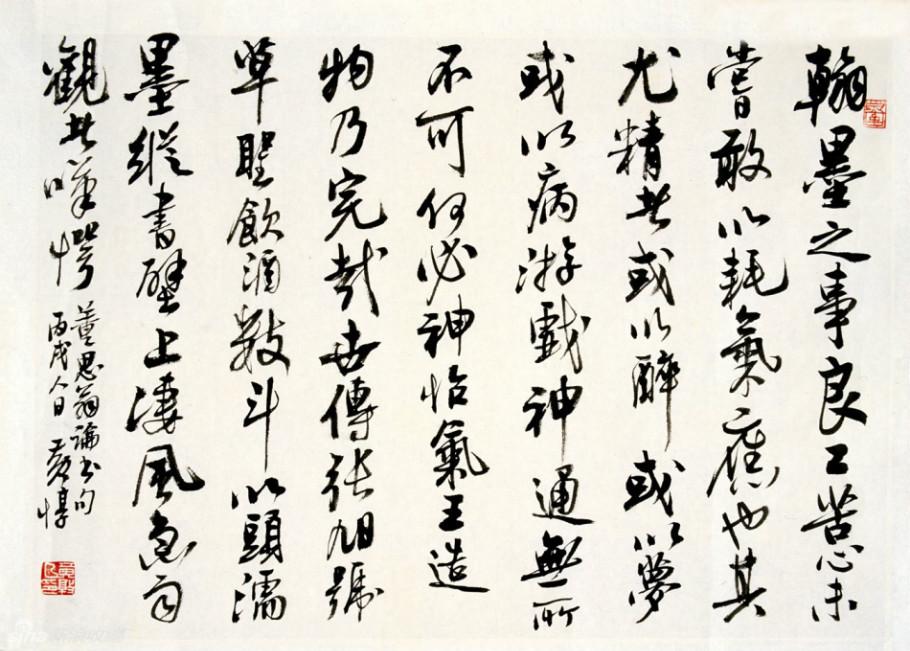 翰墨之事良工苦心未
嘗敢以耗氣應也其
尤精者或以醉或以夢
或以病游戲神通無所
不可何必神怡氣王造
物乃完哉世傳張旭號
草聖飲酒數斗以頭濡
墨縱書壁上凄風急雨
觀者嘆愕 董思翁論書句
丙戌人日 黃惇